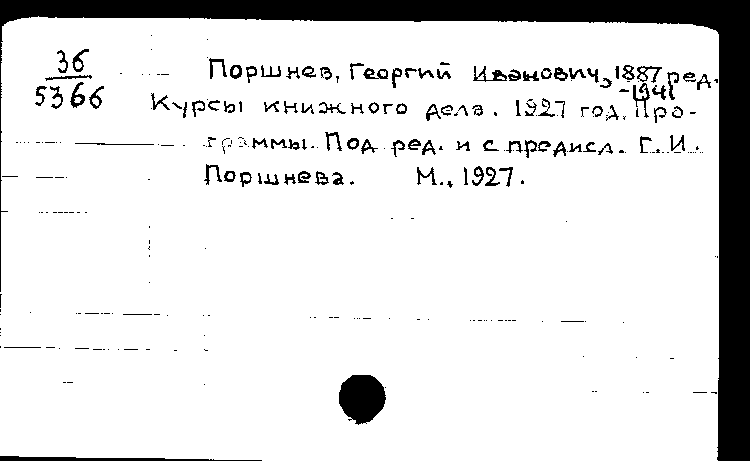 36
5366
Поршнев, Георгий Иванович, 1887 ред.
-1941
Курсы книжного дела. 1927 год. Про-
граммы. Под ред. и с предисл. Г. И.
Поршнева. М., 1927.